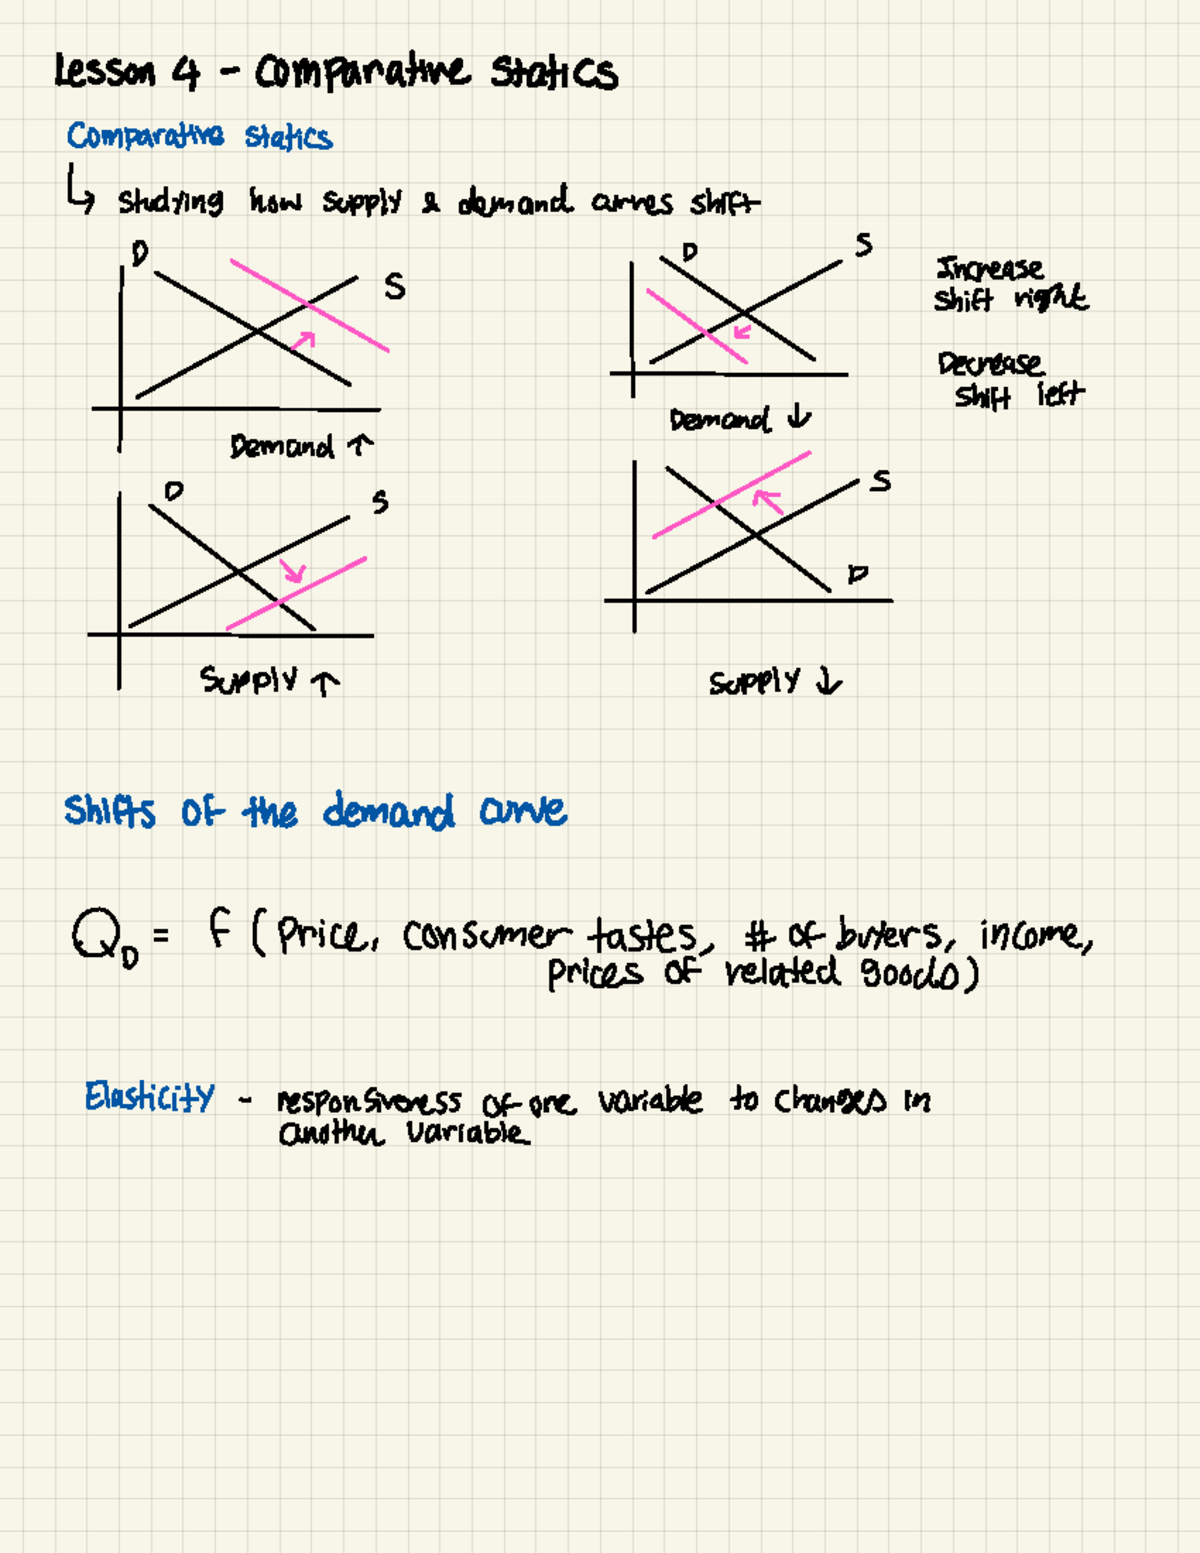 Lesson 4 - Comparative Statics
Comparative Statics
↳ Studying how supply & demand curves shift
D
S
Demand ↑
D
S
Demand ↓
Increase
shift right
Decrease
shift left
D
S
Supply ↑
S
D
Supply ↓
Shifts of the demand curve
Q_D = f (Price, consumer tastes, # of buyers, income,
prices of related goods)
Elasticity - responsiveness of one variable to changes in
another variable